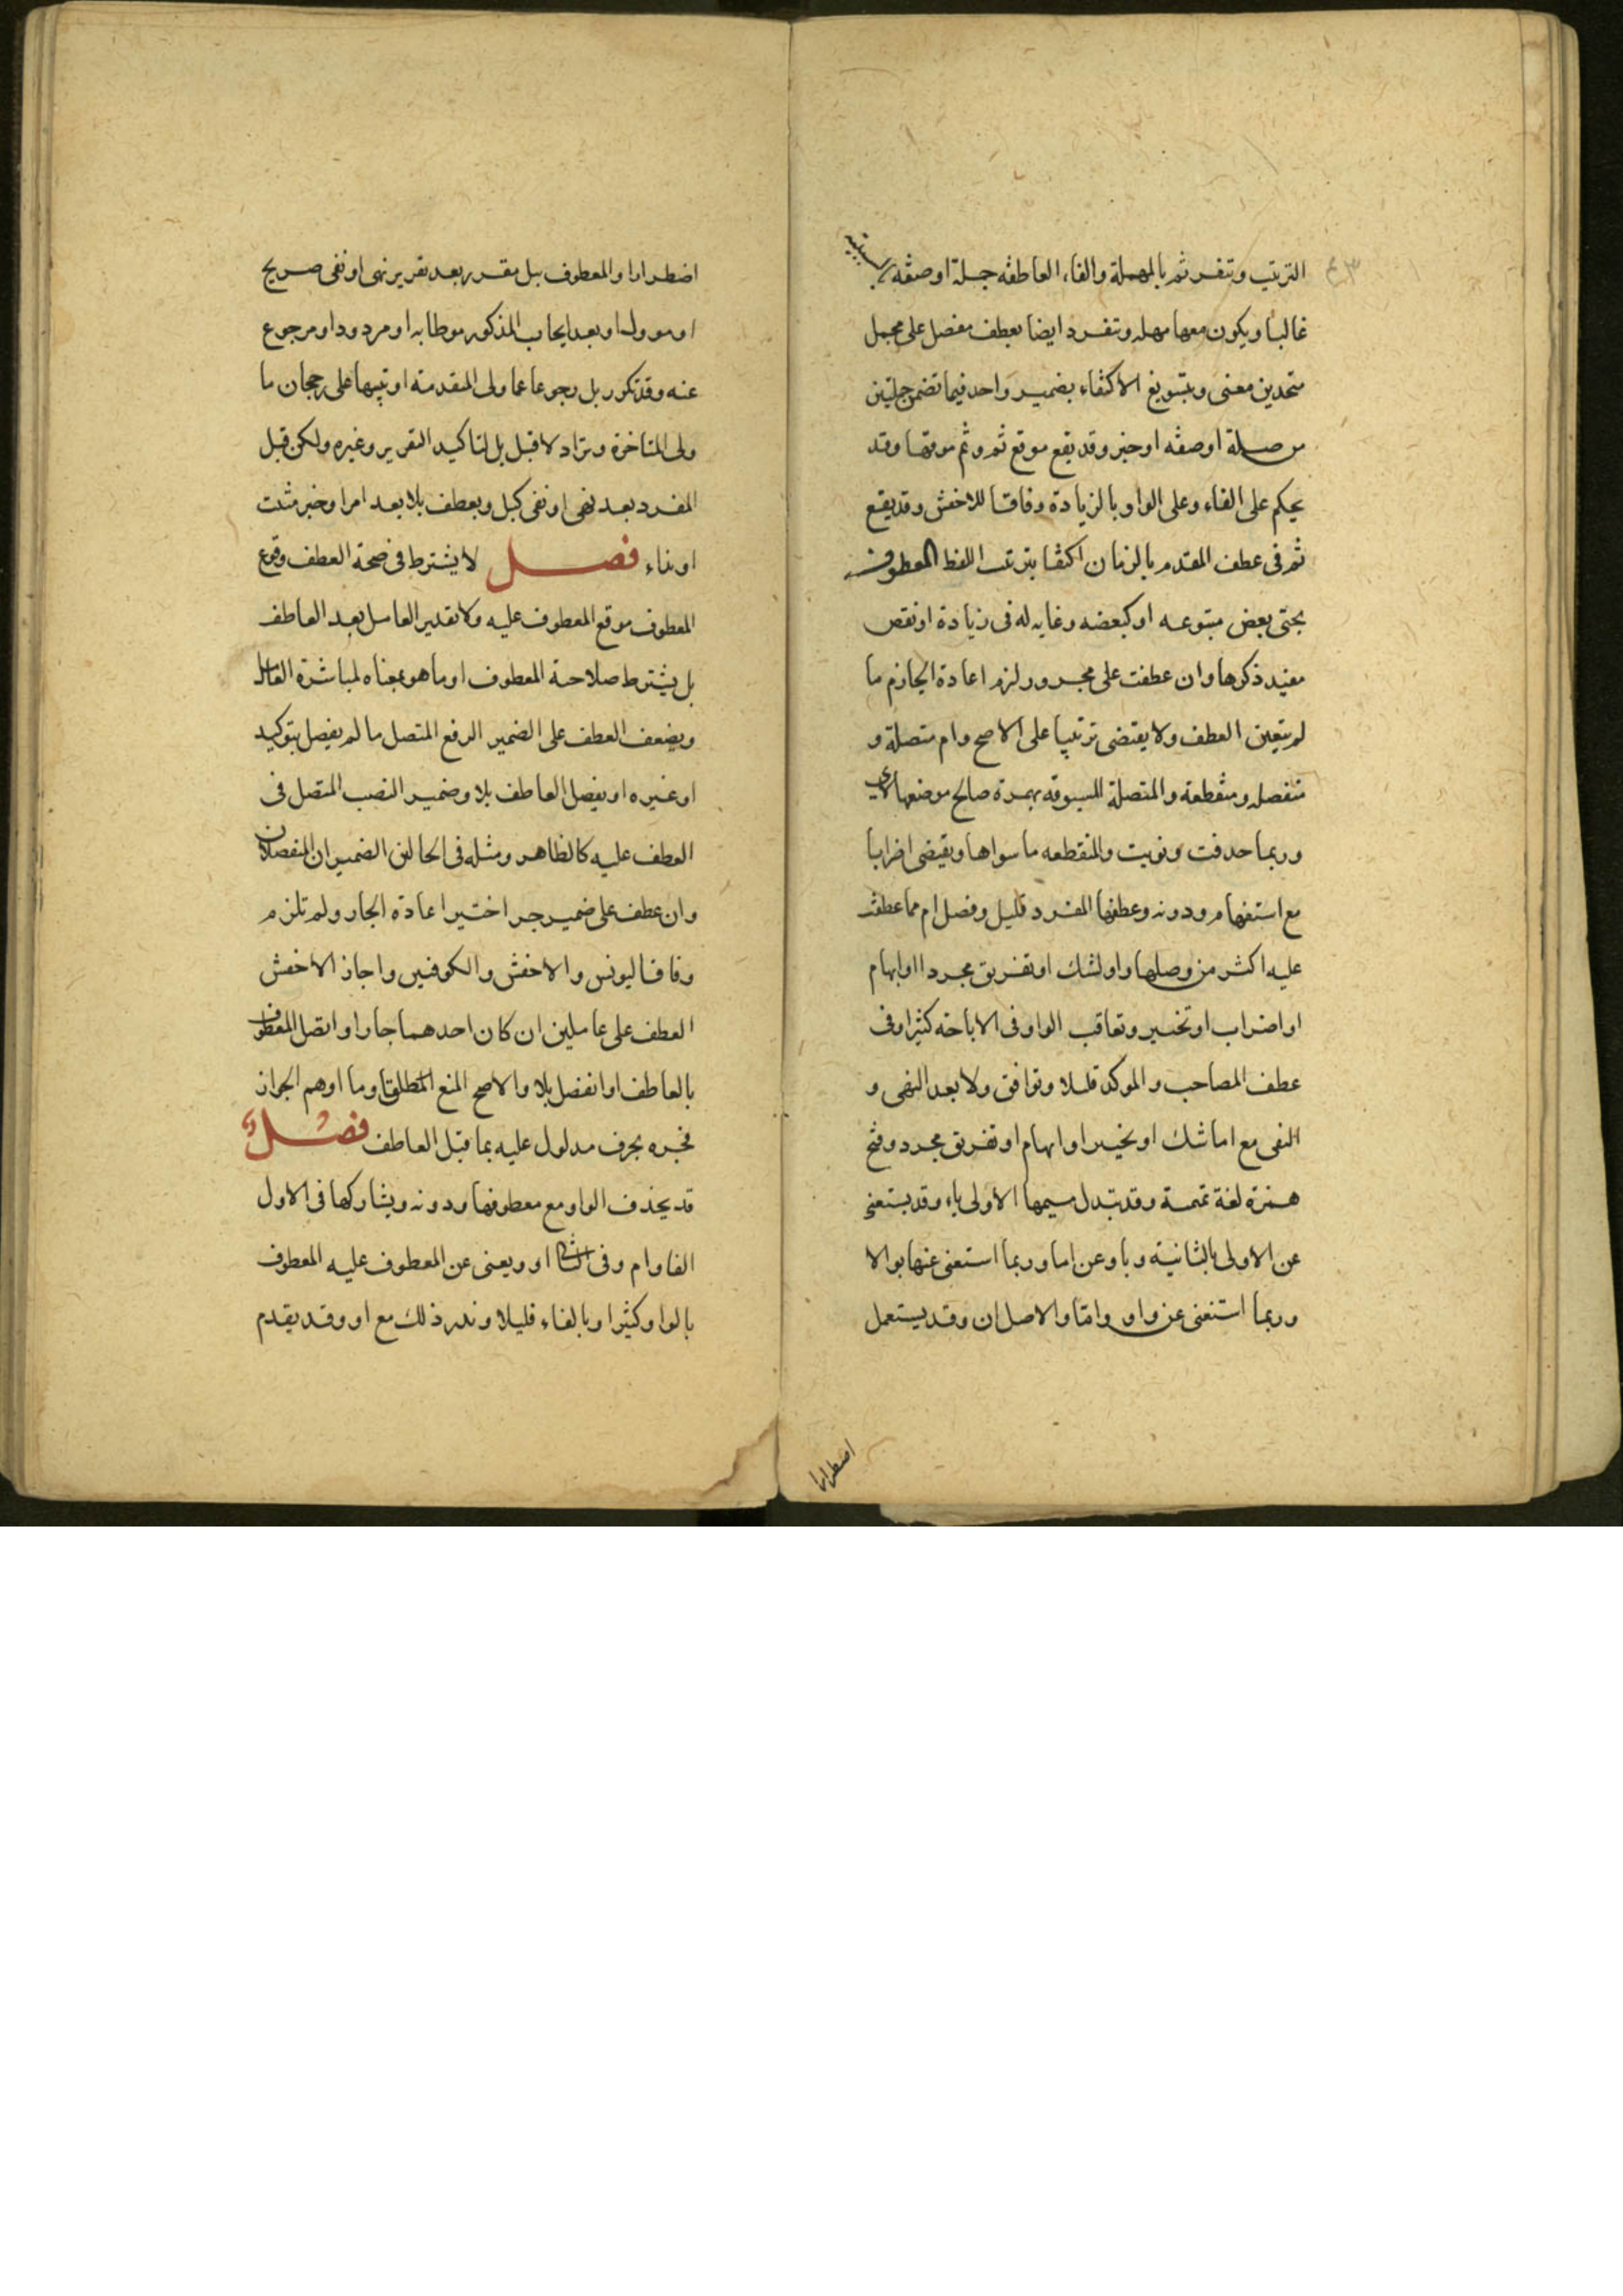 الترتيب وتنفرد ثم بالمهملة والفاء العاطفه جملة او صفه بالسببيه
غالبا ويكون معها مهله وتنفرد ايضا بعطف مفصل على مجمل
متحدين معنى وبتسويغ الاكتفاء بضمير واحد فيما تضمن جملتين
من صلة او صفه او خبر وقد يقع موقع ثم وثم موقعها وقد
يحكم على الفاء وعلى الواو بالزيادة وفاقا للاخفش وقد يقع
ثم فى عطف المقدم بالزمان اكتفا بترتب اللفظ المعطوف
بحتى بعض متبوعه او كبعضه وغايه له فى زيادة او نقص
مفيد ذكرها وان عطفت على مجرور لزم اعادة الجازم ما
لم يتعين العطف ولا يقتضى ترتيبا على الاصح وام متصلة و
منفصله ومنقطعة والمتصلة المسبوقه بهمزة صالح موضعها لاى
وربما حذفت ونويت والمنقطعه ما سواها ويقتضى اضرابا
مع استفهام ودونه وعطفها المفرد قليل وفصل ام مما عطفت
عليه اكثر من وصلها واو لشك او تفريق مجرد او ابهام
او اضراب او تخيير وتعاقب الواو فى الاباحة كثيرا وفى
عطف المصاحب والموكد قليلا وتوافق ولا بعد النهى و
النفى مع اما شك او تخيير او ابهام او تفريق مجرد وفتح
همزة لغة تميمية وقد تبدل ميمها الاولى ياء وقد يستغنى
عن الاولى بالثانية وباو عن اما وربما استغنى عنها بوالا
وربما استغنى عن واو واما والاصل ان وقد يستعمل
اضطرارا
اضطرارا والمعطوف ببل مقرر بعد تقرير نهى او نفى صريح
او موول او بعد ايجاب المذكور موطا به او مردود او مرجوع
عنه وقد تكرر بل رجوعا عما ولى المتقدمة او تنبيها على رجحان ما
ولى المتاخرة وتزاد لا قبل بل لتاكيد التقرير وغيره ولكن قبل
المفرد بعد نهى او نفى كبل ويعطف بلا بعد امر او خبر مثبت
او نداء فصل لا يشترط فى صحة العطف وقوع
المعطوف موقع المعطوف عليه ولا تقدير العامل بعد العاطف
بل يشترط صلاحية المعطوف او ما هو بمعناه لمباشرة العامل
ويضعف العطف على الضمير الرفع المتصل ما لم يفصل بتوكيد
او غيره او يفصل العاطف بلا وضمير النصب المتصل فى
العطف عليه كالظاهر ومثله فى الحالين الضميران المنفصلان
وان عطف على ضمير جر اختير اعادة الجار ولم تلزم
وفاقا ليونس والاخفش والكوفيين واجاز الاخفش
العطف على عاملين ان كان احدهما جارا واتصل المعطوف
بالعاطف او انفصل بلا والاصح المنع المطلقا وما اوهم الجواز
فجره بحرف مدلول عليه بما قبل العاطف فصل
قد يحذف الواو مع معطوفها ودونه ويشاركها فى الاول
الفا وام وفى الثانى او ويغنى عن المعطوف عليه المعطوف
بالواو كثيرا وبالفاء قليلا وندر ذلك مع او وقد يقدم